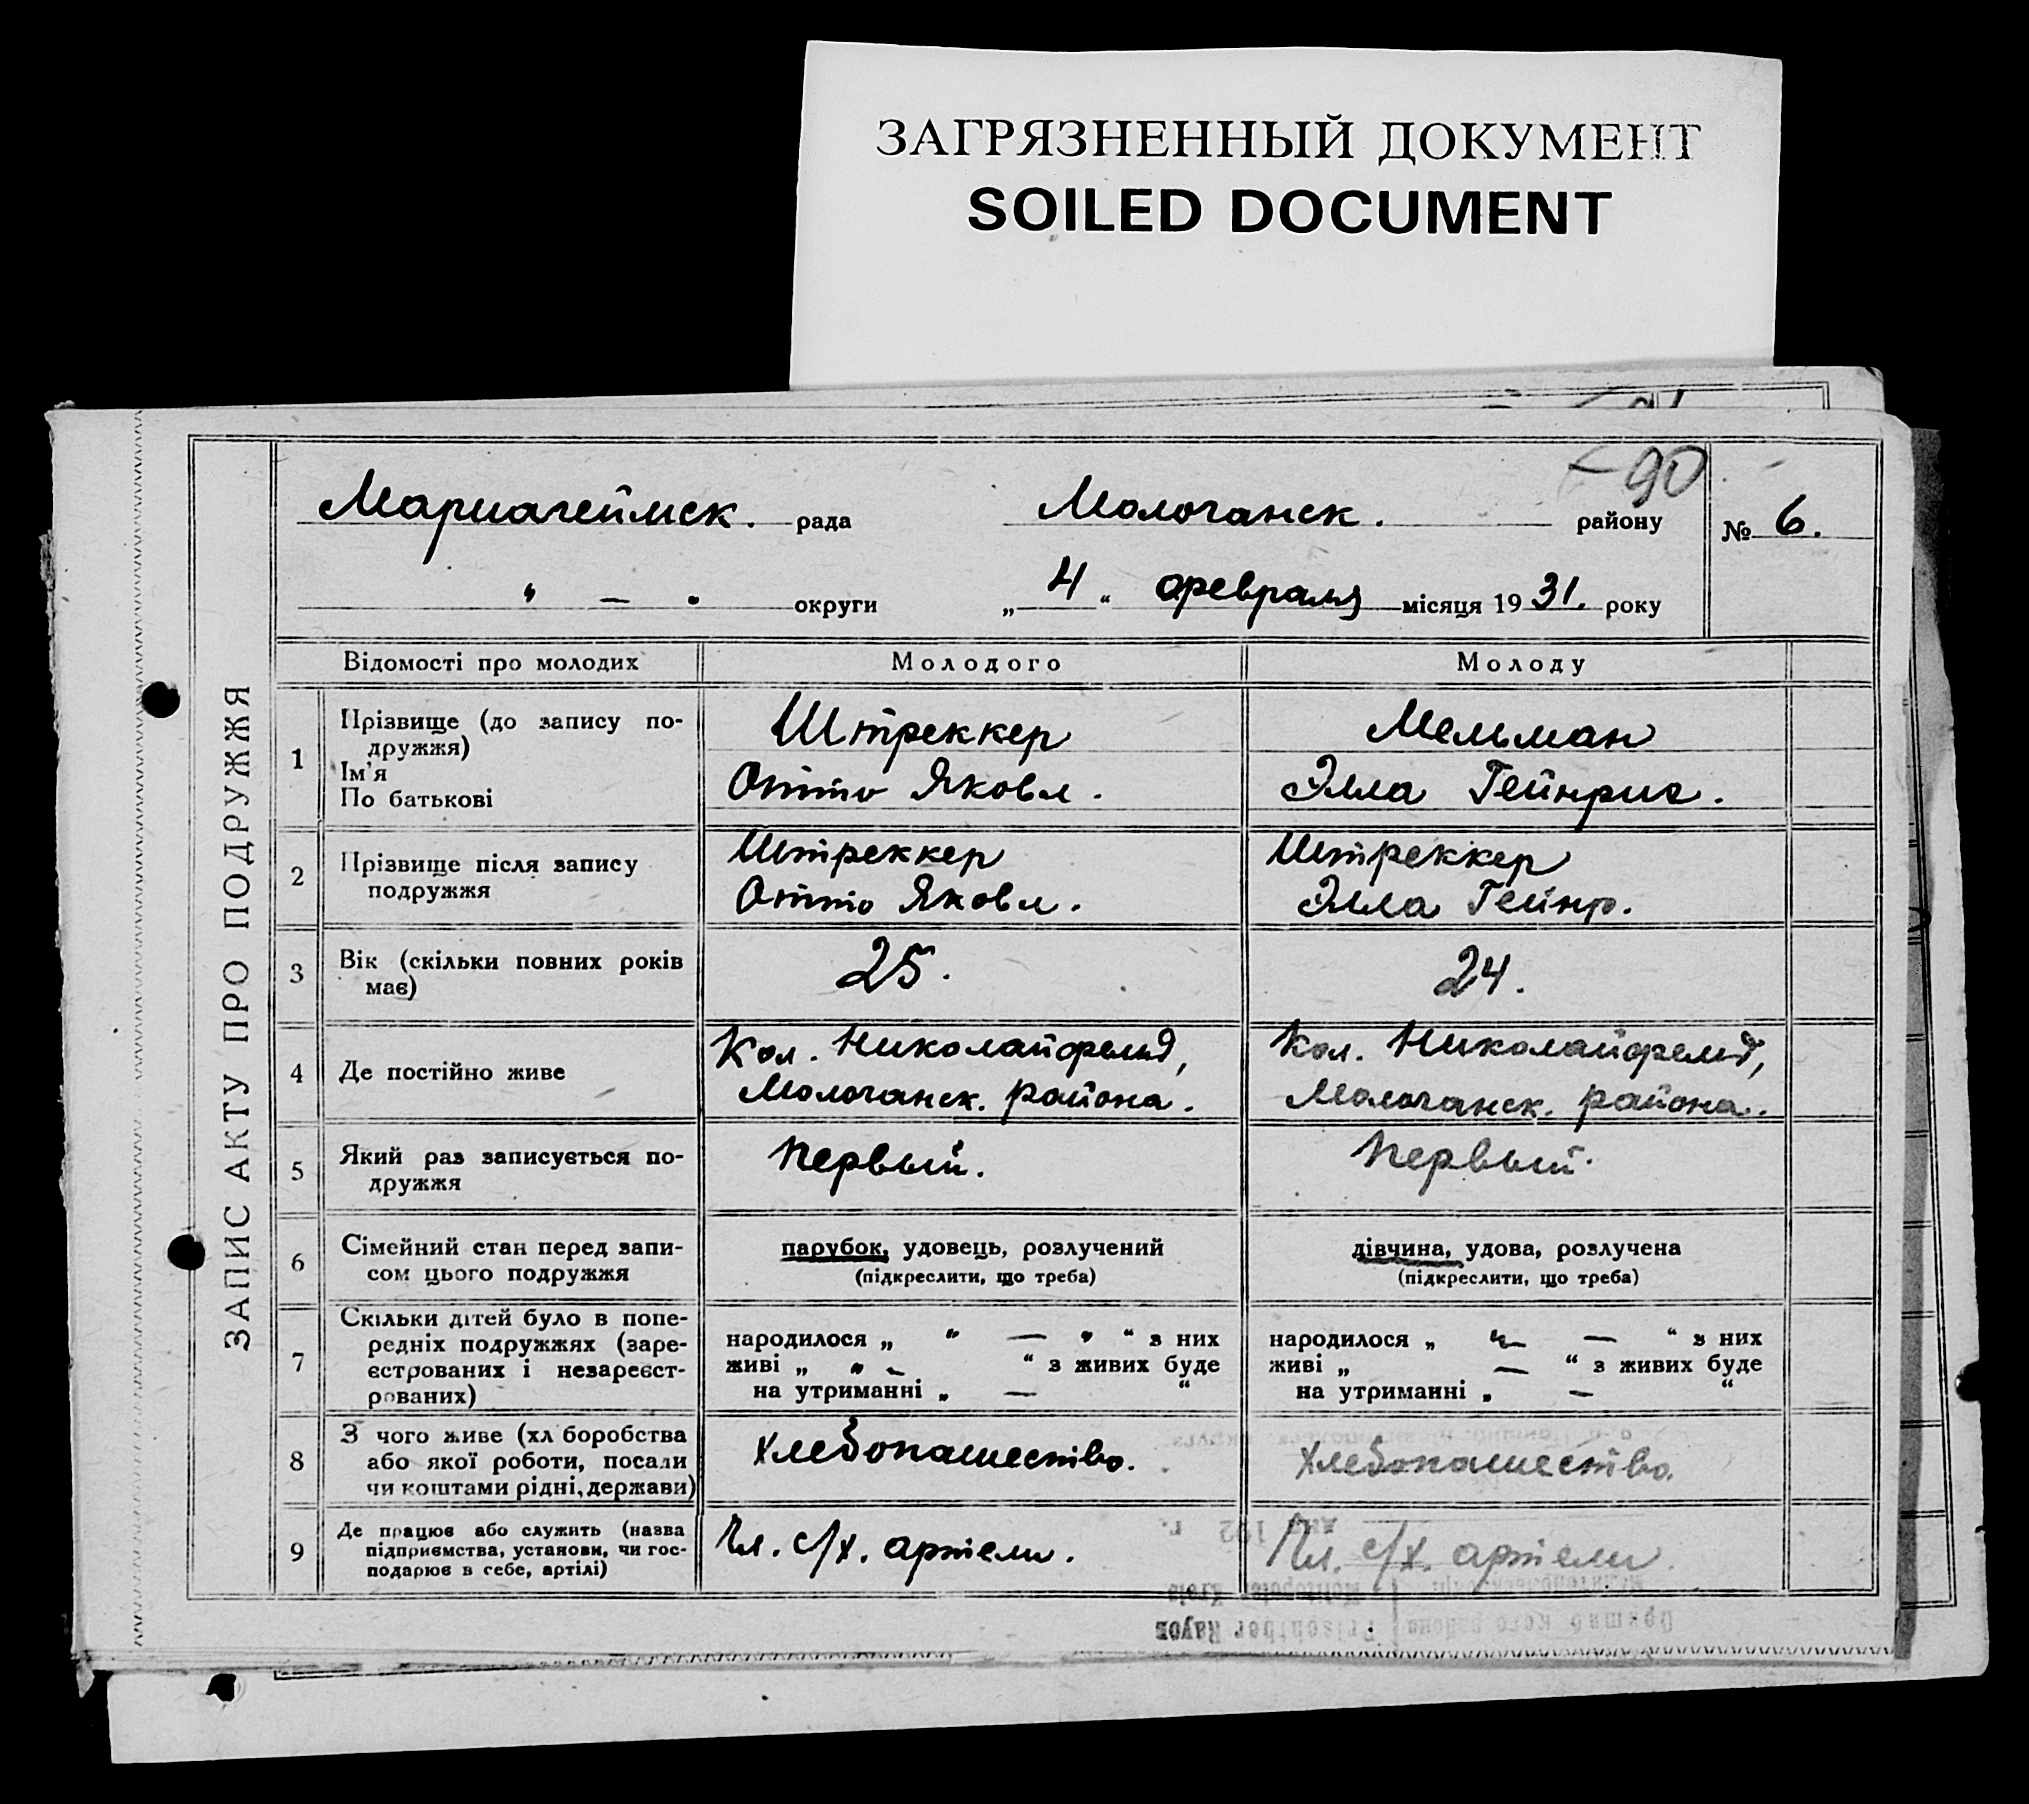 ЗАГРЯЗНЕННЫЙ ДОКУМЕНТ
SOILED DOCUMENT
90
ЗАПИС АКТУ ПРО ПОДРУЖЖЯ
Мариагеймск. рада Молочанск. району № 6.
" — " округи „ 4 " февраля місяця 1931. року
Відомості про молодих Молодого Молоду
1 Прізвище (до запису по-
дружжя)
Ім'я
По батькові
Штреккер
Отто Яковл.
Мельман
Элла Гейнрих.
2 Прізвище після запису
подружжя
Штреккер
Отто Яковл.
Штреккер
Элла Гейнр.
3 Вік (скільки повних років
має)
25.
24.
4 Де постійно живе
Кол. Николайфельд,
Молочанск. района.
Кол. Николайфельд,
Молочанск. района.
5 Який раз записується по-
дружжя
Первый.
Первый.
6 Сімейний стан перед запи-
сом цього подружжя
парубок, удовець, розлучений
(підкреслити, що треба)
дівчина, удова, розлучена
(підкреслити, що треба)
7 Скільки дітей було в попе-
редніх подружжях (заре-
єстрованих і незареєст-
рованих)
народилося „ " — " “ з них
живі „ " — “ з живих буде
на утриманні „ — “
народилося „ " — — “ з них
живі „ — “ з живих буде
на утриманні „ — “
8 З чого живе (хл боробства
або якої роботи, посади
чи коштами рідні, держави)
Хлебопашество.
Хлебопашество.
9 Де працює або служить (назва
підприємства, установи, чи гос-
подарює в себе, артілі)
Чл. с/х. артели.
Чл. с/х. артели.